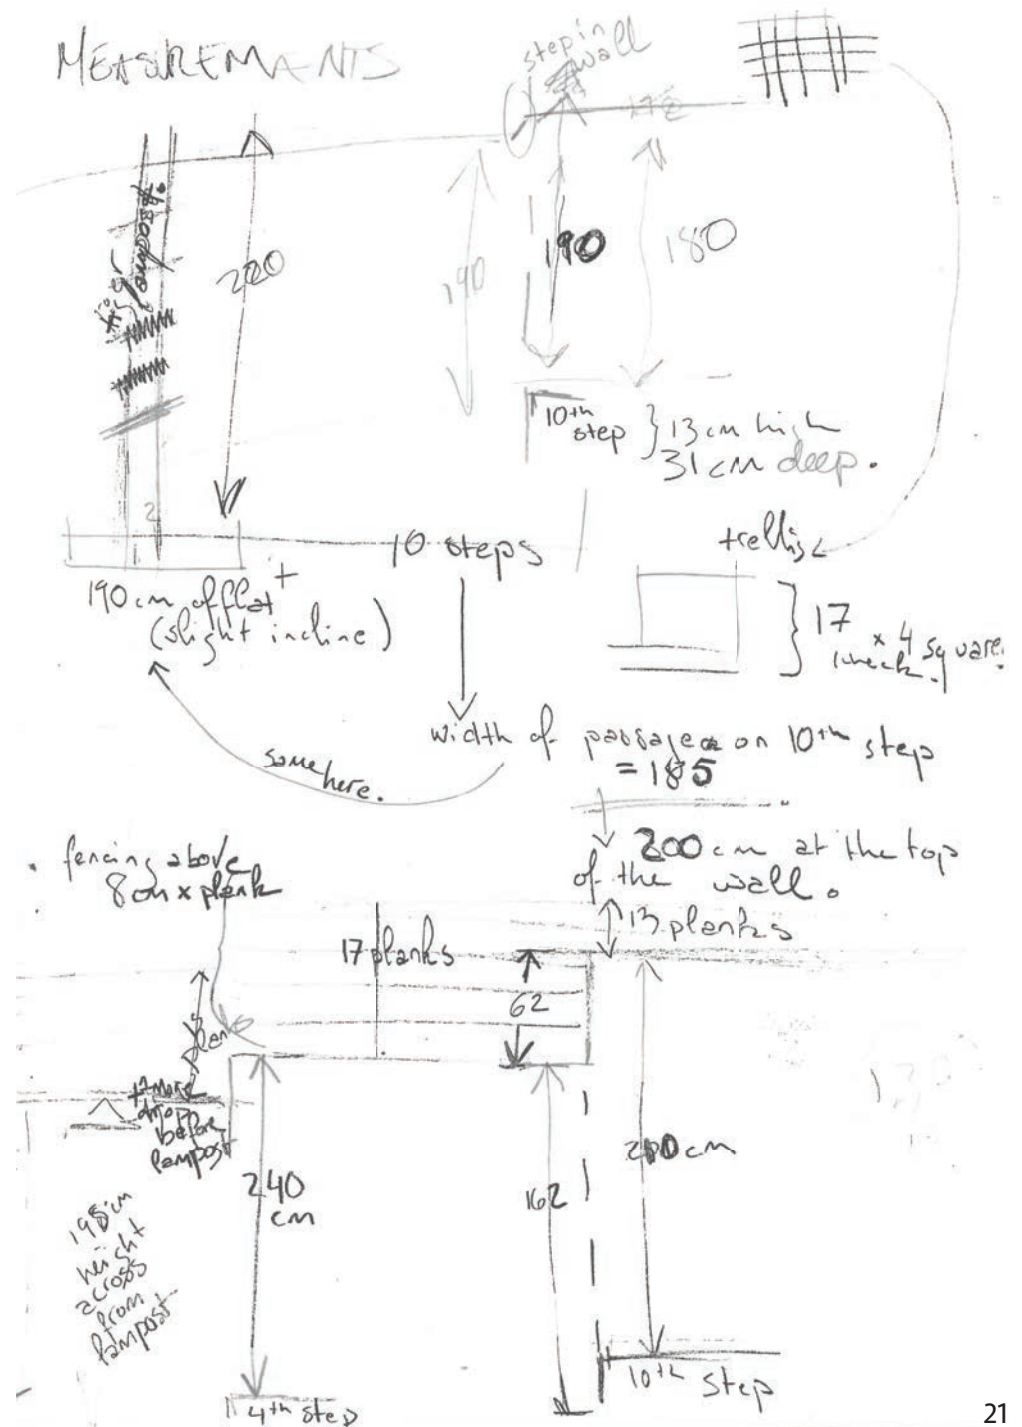 MEASUREMANTS
step in
wall
178
220
190
190
180
10th
step
13 cm high
31 cm deep.
2
10 steps
trellis
190 cm of flat +
(slight incline)
17
inch x 4 square.
width of passage on 10th step
= 185
same here.
200 cm at the top
of the wall.
fencing above
8cm x plank
13 planks
17 planks
62
+2 more
drop
before
lampost
240
cm
162
200 cm
198cm
height
across
from
lampost
4th step
10th step
21